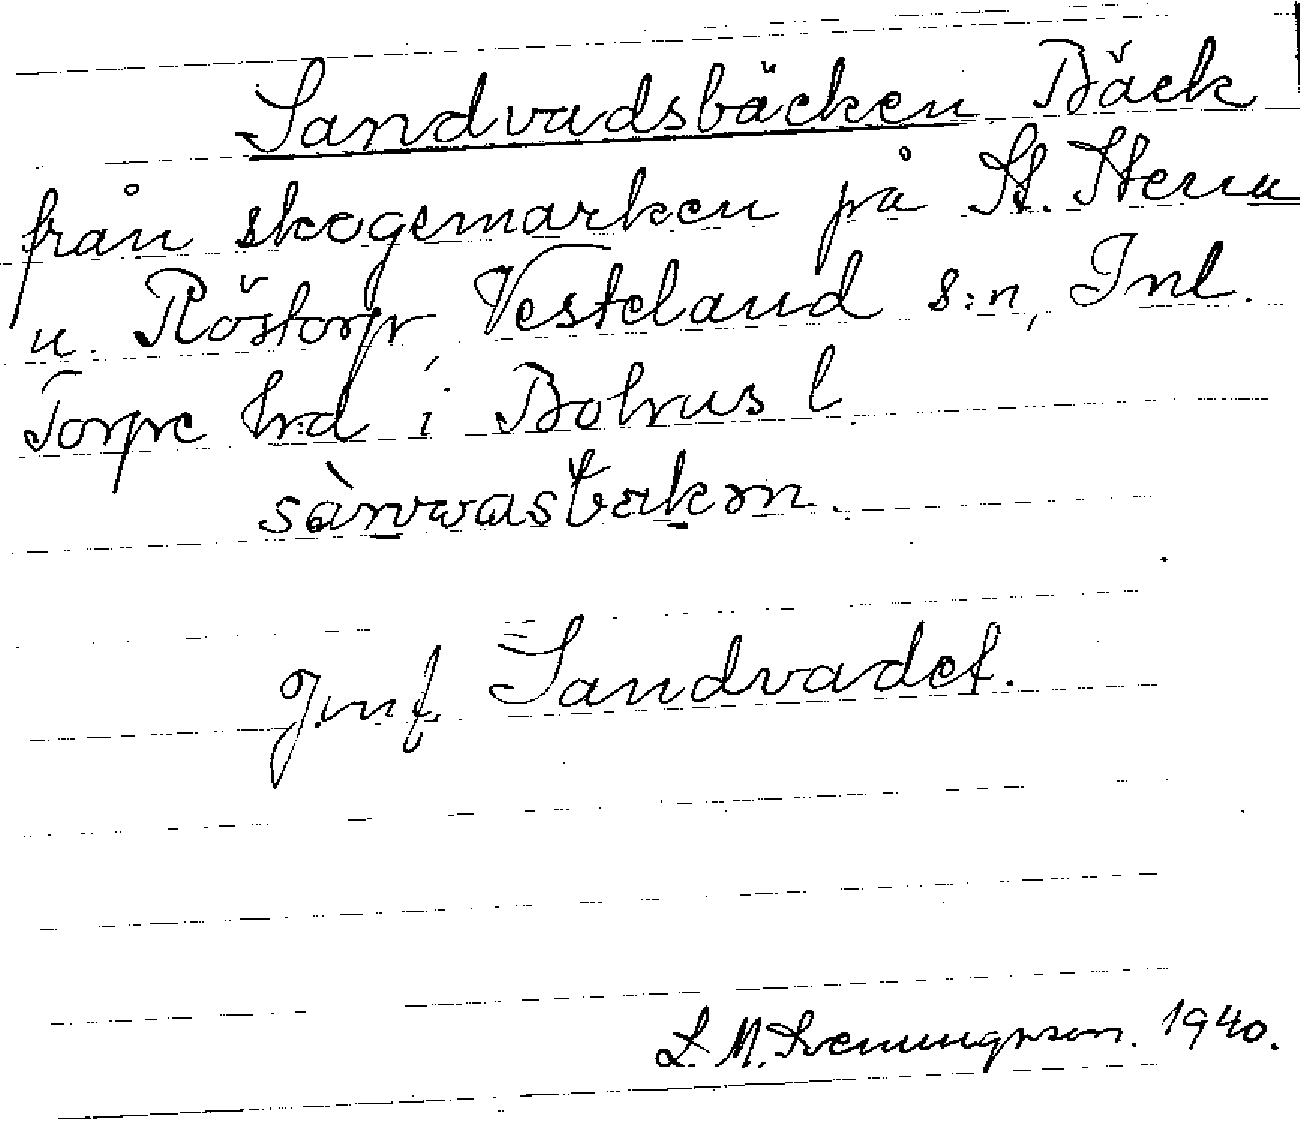 Sandvadsbäcken Bäck
från skogsmarken på St. Stenu
u. Röstorp Vesteland s:n, Inl.
Torpe hrd i Bohus l
sànvwasbækən.
Jmf Sandvadet.
L. M. Svenungsson. 1940.